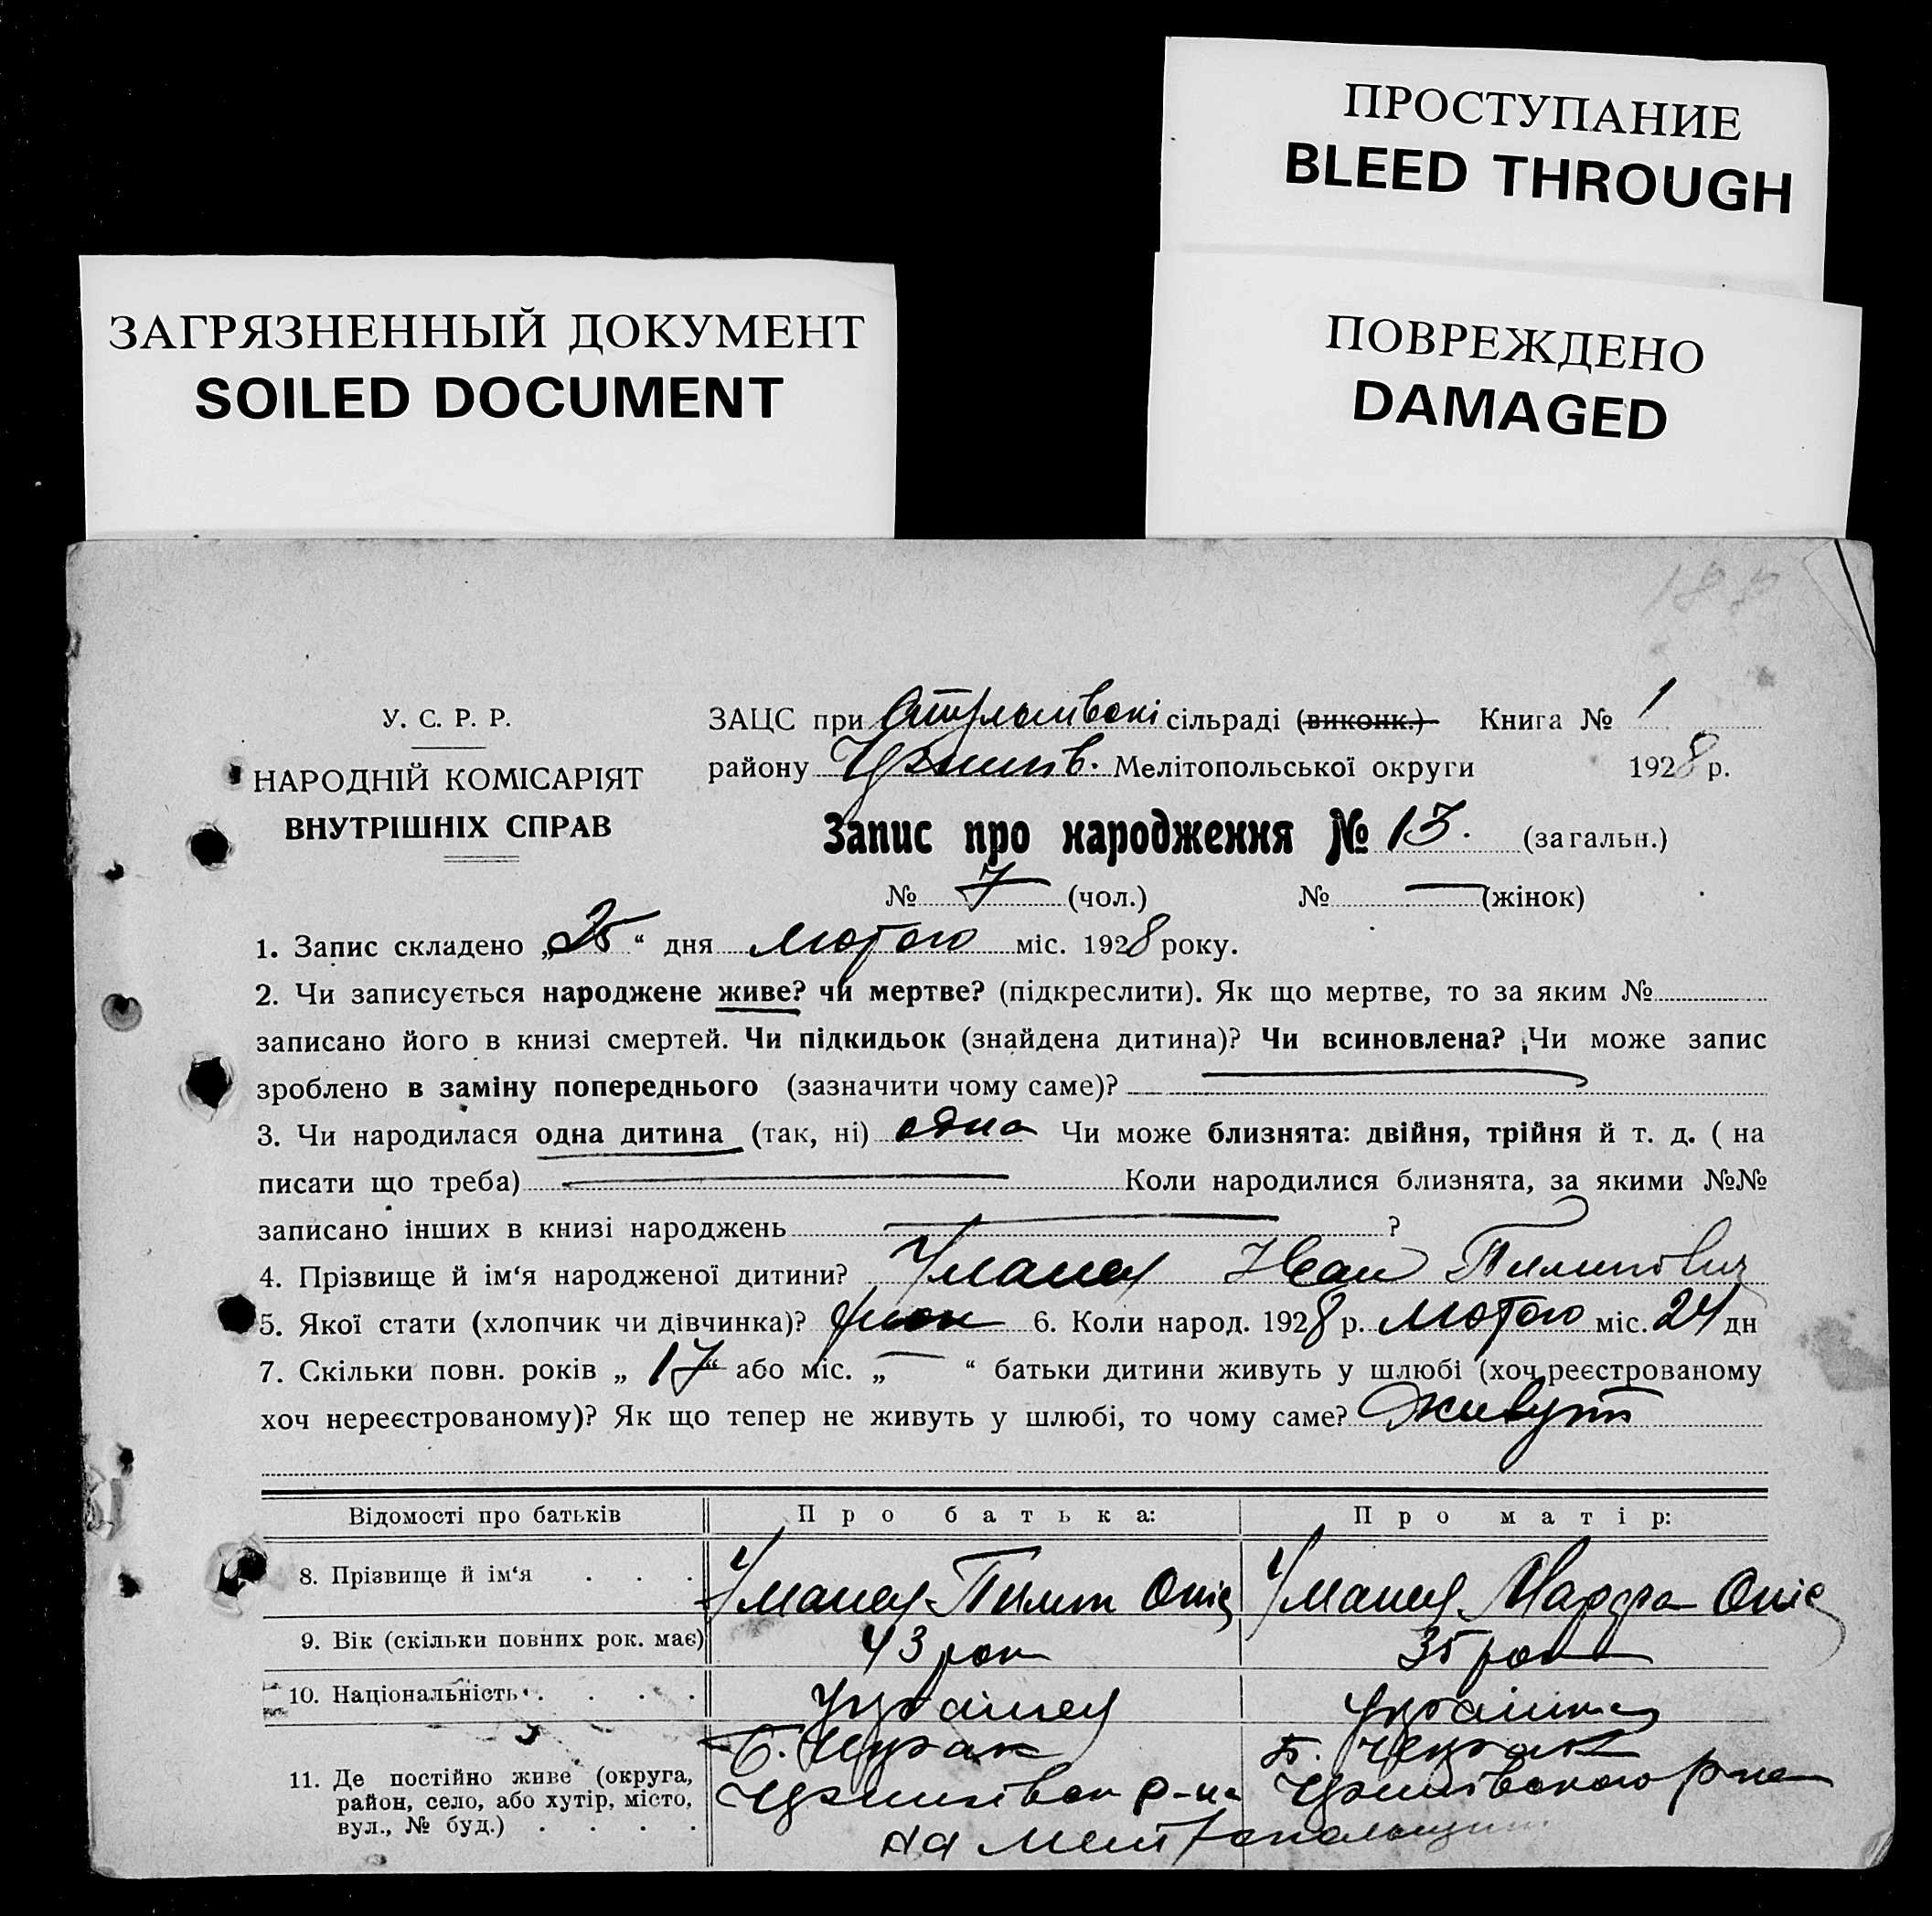 ПРОСТУПАНИЕ
BLEED THROUGH
ЗАГРЯЗНЕННЫЙ ДОКУМЕНТ
SOILED DOCUMENT
ПОВРЕЖДЕНО
DAMAGED
У. С. Р. Р.
НАРОДНІЙ КОМІСАРІЯТ
ВНУТРІШНІХ СПРАВ
ЗАЦС при сільраді (виконк.) Книга № 1
району Мелітопольської округи 1928 р.
Запис про народження № (загальн.)
№ 7 (чол.) № — (жінок)
1. Запис складено „25“ дня Лютого міс. 1928 року.
2. Чи записується народжене живе? чи мертве? (підкреслити). Як що мертве, то за яким №
записано його в книзі смертей. Чи підкидьок (знайдена дитина)? Чи всиновлена? Чи може запис
зроблено в заміну попереднього (зазначити чому саме)?
3. Чи народилася одна дитина (так, ні) одна Чи може близнята: двійня, трійня й т. д. (на
писати що треба) Коли народилися близнята, за якими №№
записано інших в книзі народжень ?
4. Прізвище й ім‘я народженої дитини? Уманец Иван Пилипович
5. Якої стати (хлопчик чи дівчинка)? 6. Коли народ. 1928 р. Лютого міс. 24 дн
7. Скільки повн. років „17“ або міс. „—“ батьки дитини живуть у шлюбі (хоч реєстрованому
хоч нереєстрованому)? Як що тепер не живуть у шлюбі, то чому саме? Живуть
Відомості про батьків Про батька: Про матір:
8. Прізвище й ім‘я Уманец Пилип Уманец Марфа
9. Вік (скільки повних рок. має) 43 рок 35 рок
10. Національність Українец Українка
11. Де постійно живе (округа,
район, село, або хутір, місто,
вул., № буд.)
р-на р-на
на Мелітопольщині